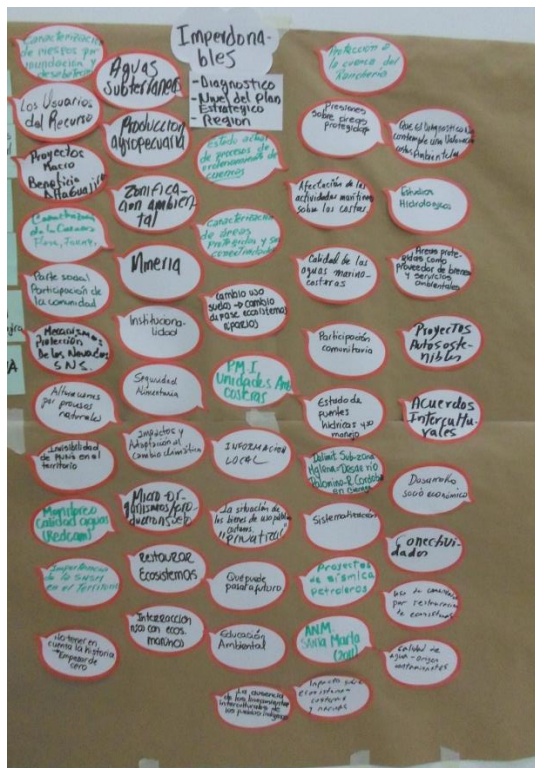 Imperdona-
bles
-Diagnostico
-Nivel del Plan
Estrategico
-Region
Caracterizacion
de riesgos por
inundación y
Los Usuarios
del Recurso
Proyectos
Macro
Beneficio
Parte social
Participación de
la comunidad
Mecanismos
Protección
De los Nevados
S.N.S.
Alteraciones
por procesos
naturales
Invisibilidad
en el
territorio
Monitoreo
calidad aguas
(Redcam)
Importancia
de la SNSM
en el Territorio
No tener en
cuenta la historia
Empezar de
cero
Aguas
Subterraneas
Produccion
Agropecuaria
Zonifica-
cion ambien-
tal
Mineria
Instituciona-
lidad
Seguridad
Alimentaria
Impactos y
Adaptación al
cambio climático
Micro-or-
Restaurar
Ecosistemas
Interacción
con ecos.
marinos
Estado actual
de procesos de
ordenamiento de
cuencas
Caracterización
de áreas
protegidas y su
conectividad
cambio uso
suelos → cambio
PM.I
Unidades Amb
Costeras
INFORMACION
LOCAL
La situación de
los bienes de uso público
"privatiza"
Que puede
pasar a futuro
Educación
Ambiental
La ausencia
de los lineamientos
interculturales de
los pueblos indígenas
Protección a
la cuenca del
Ranchería
Presiones
sobre áreas
protegidas
Afectación de las
actividades marítimas
sobre las costas
Calidad de las
aguas marino-
costeras
Participación
comunitaria
Estudio de
fuentes
hidricas y su
manejo
Delimit. Sub-zona
Sistematización
Proyectos
de sísmica
petroleros
Santa Marta
(2011)
Impacto sobre
ecosistemas
costeros
Que el Diagnostico
contemple una Valoración
Costos Ambientales
Estudios
Hidrologicos
Areas prote-
gidas como
proveedor de bienes
y servicios
ambientales
Proyectos
Autososte-
nibles
Acuerdos
Intercultu-
rales
Desarrollo
socio económico
Conectivi-
dados
Calidad de
agua - origen
contaminantes